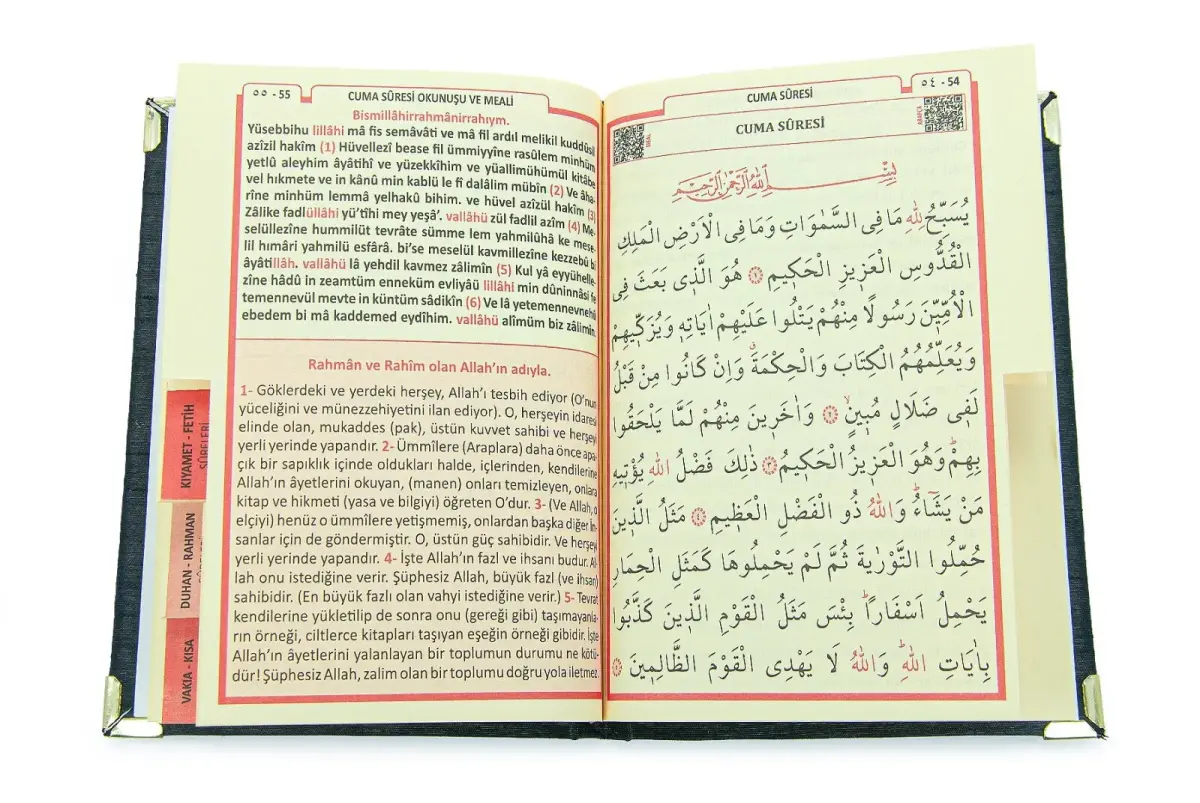 ٥٥ - 55
CUMA SÛRESİ OKUNUŞU VE MEALİ
Bismillâhirrahmânirrahıym.
Yüsebbihu lillâhi mâ fis semâvâti ve mâ fil ardıl melikil kuddûsil
azîzil hakîm (1) Hüvellezî bease fil ümmiyyîne rasûlem minhüm
yetlû aleyhim âyâtihî ve yüzekkîhim ve yüallimühümül kitâbe
vel hıkmete ve in kânû min kablü le fî dalâlim mübîn (2) Ve âha-
rîne minhüm lemmâ yelhakû bihim. ve hüvel azîzül hakîm (3)
Zâlike fadlüllâhi yü'tîhi mey yeşâ'. vallâhü zül fadlil azîm (4) Me-
selüllezîne hummilüt tevrâte sümme lem yahmilûhâ ke mese-
lil hımâri yahmilü esfârâ. bi'se meselül kavmillezîne kezzebû bi
âyâtillâh. vallâhü lâ yehdil kavmez zâlimîn (5) Kul yâ eyyühelle-
zîne hâdû in zeamtüm enneküm evliyâü lillâhi min dûninnâsi fe
temennevül mevte in küntüm sâdikîn (6) Ve lâ yetemennevnehû
ebedem bi mâ kaddemed eydîhim. vallâhü alîmüm biz zâlimîn.
Rahmân ve Rahîm olan Allah'ın adıyla.
1- Göklerdeki ve yerdeki herşey, Allah'ı tesbih ediyor (O'nun
yüceliğini ve münezzehiyetini ilan ediyor). O, herşeyin idaresi
elinde olan, mukaddes (pak), üstün kuvvet sahibi ve herşeyi
yerli yerinde yapandır. 2- Ümmîlere (Araplara) daha önce apa-
çık bir sapıklık içinde oldukları halde, içlerinden, kendilerine
Allah'ın âyetlerini okuyan, (manen) onları temizleyen, onlara
kitap ve hikmeti (yasa ve bilgiyi) öğreten O'dur. 3- (Ve Allah, o
elçiyi) henüz o ümmîlere yetişmemiş, onlardan başka diğer İn-
sanlar için de göndermiştir. O, üstün güç sahibidir. Ve herşeyi
yerli yerinde yapandır. 4- İşte Allah'ın fazl ve ihsanı budur. Al-
lah onu istediğine verir. Şüphesiz Allah, büyük fazl (ve ihsan)
sahibidir. (En büyük fazlı olan vahyi istediğine verir.) 5- Tevrat
kendilerine yükletilip de sonra onu (gereği gibi) taşımayanla-
rın örneği, ciltlerce kitapları taşıyan eşeğin örneği gibidir. İşte
Allah'ın âyetlerini yalanlayan bir toplumun durumu ne kötü-
dür! Şüphesiz Allah, zalim olan bir toplumu doğru yola iletmez.
KIYAMET - FETİH
SÛRELERİ
DUHAN - RAHMAN
VAKIA - KISA
CUMA SÛRESİ
٥٤ - 54
MEAL
CUMA SÛRESİ
ARAPÇA
بِسْمِ اللّٰهِ الرَّحْمٰنِ الرَّحِيمِ
يُسَبِّحُ لِلّٰهِ مَا فِى السَّمٰوَاتِ وَمَا فِى الْاَرْضِ الْمَلِكِ
الْقُدُّوسِ الْعَزِيزِ الْحَكِيمِ ﴿١﴾ هُوَ الَّذِى بَعَثَ فِى
الْاُمِّيِّنَ رَسُولًا مِنْهُمْ يَتْلُوا عَلَيْهِمْ اٰيَاتِهِ وَيُزَكِّيهِمْ
وَيُعَلِّمُهُمُ الْكِتَابَ وَالْحِكْمَةَ وَاِنْ كَانُوا مِنْ قَبْلُ
لَفِى ضَلَالٍ مُبِينٍ ﴿٢﴾ وَاٰخَرِينَ مِنْهُمْ لَمَّا يَلْحَقُوا
بِهِمْ وَهُوَ الْعَزِيزُ الْحَكِيمُ ﴿٣﴾ ذٰلِكَ فَضْلُ اللّٰهِ يُؤْتِيهِ
مَنْ يَشَاءُ وَاللّٰهُ ذُو الْفَضْلِ الْعَظِيمِ ﴿٤﴾ مَثَلُ الَّذِينَ
حُمِّلُوا التَّوْرٰيةَ ثُمَّ لَمْ يَحْمِلُوهَا كَمَثَلِ الْحِمَارِ
يَحْمِلُ اَسْفَاراً بِئْسَ مَثَلُ الْقَوْمِ الَّذِينَ كَذَّبُوا
بِاٰيَاتِ اللّٰهِ وَاللّٰهُ لَا يَهْدِى الْقَوْمَ الظَّالِمِينَ ﴿٥﴾